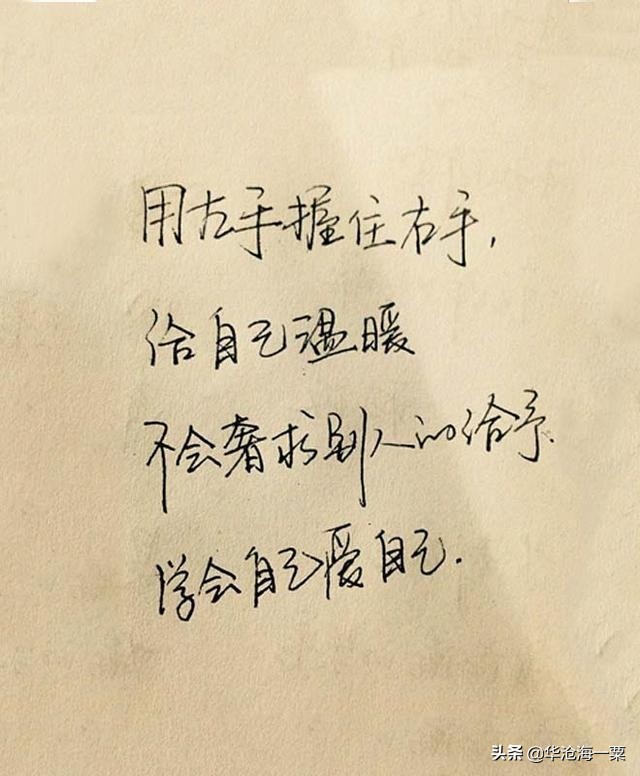 用左手握住右手,
给自己温暖
不会奢求别人的给予.
学会自己爱自己.
头条 @华沧海一粟